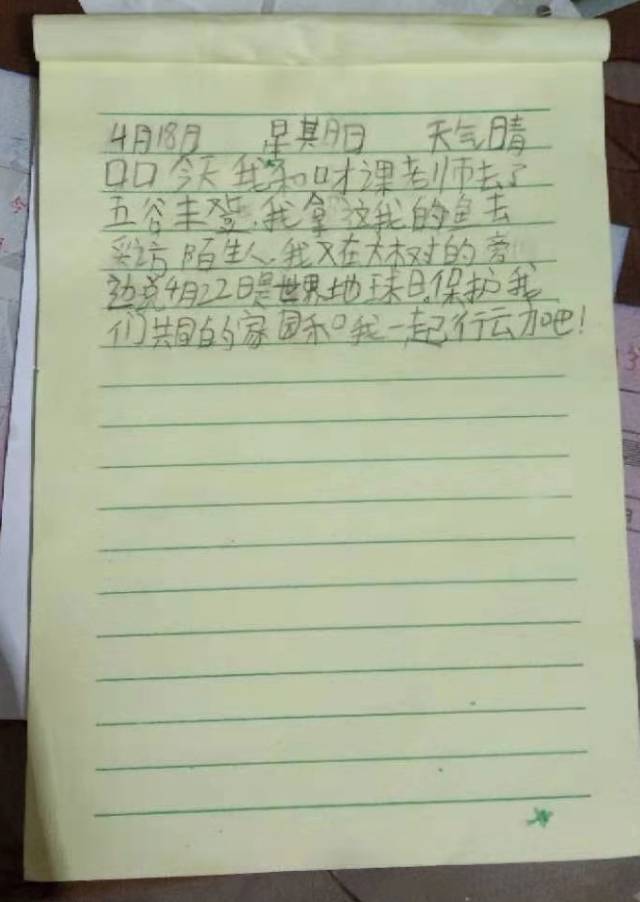 4月18日 星期日 天气晴
口口今天我和口才课老师去了
五谷丰登.我拿这我的鱼去
采访陌生人.我又在大树的旁
边说4月22日是世界地球日.保护我
们共同的家园和我一起行云力吧!